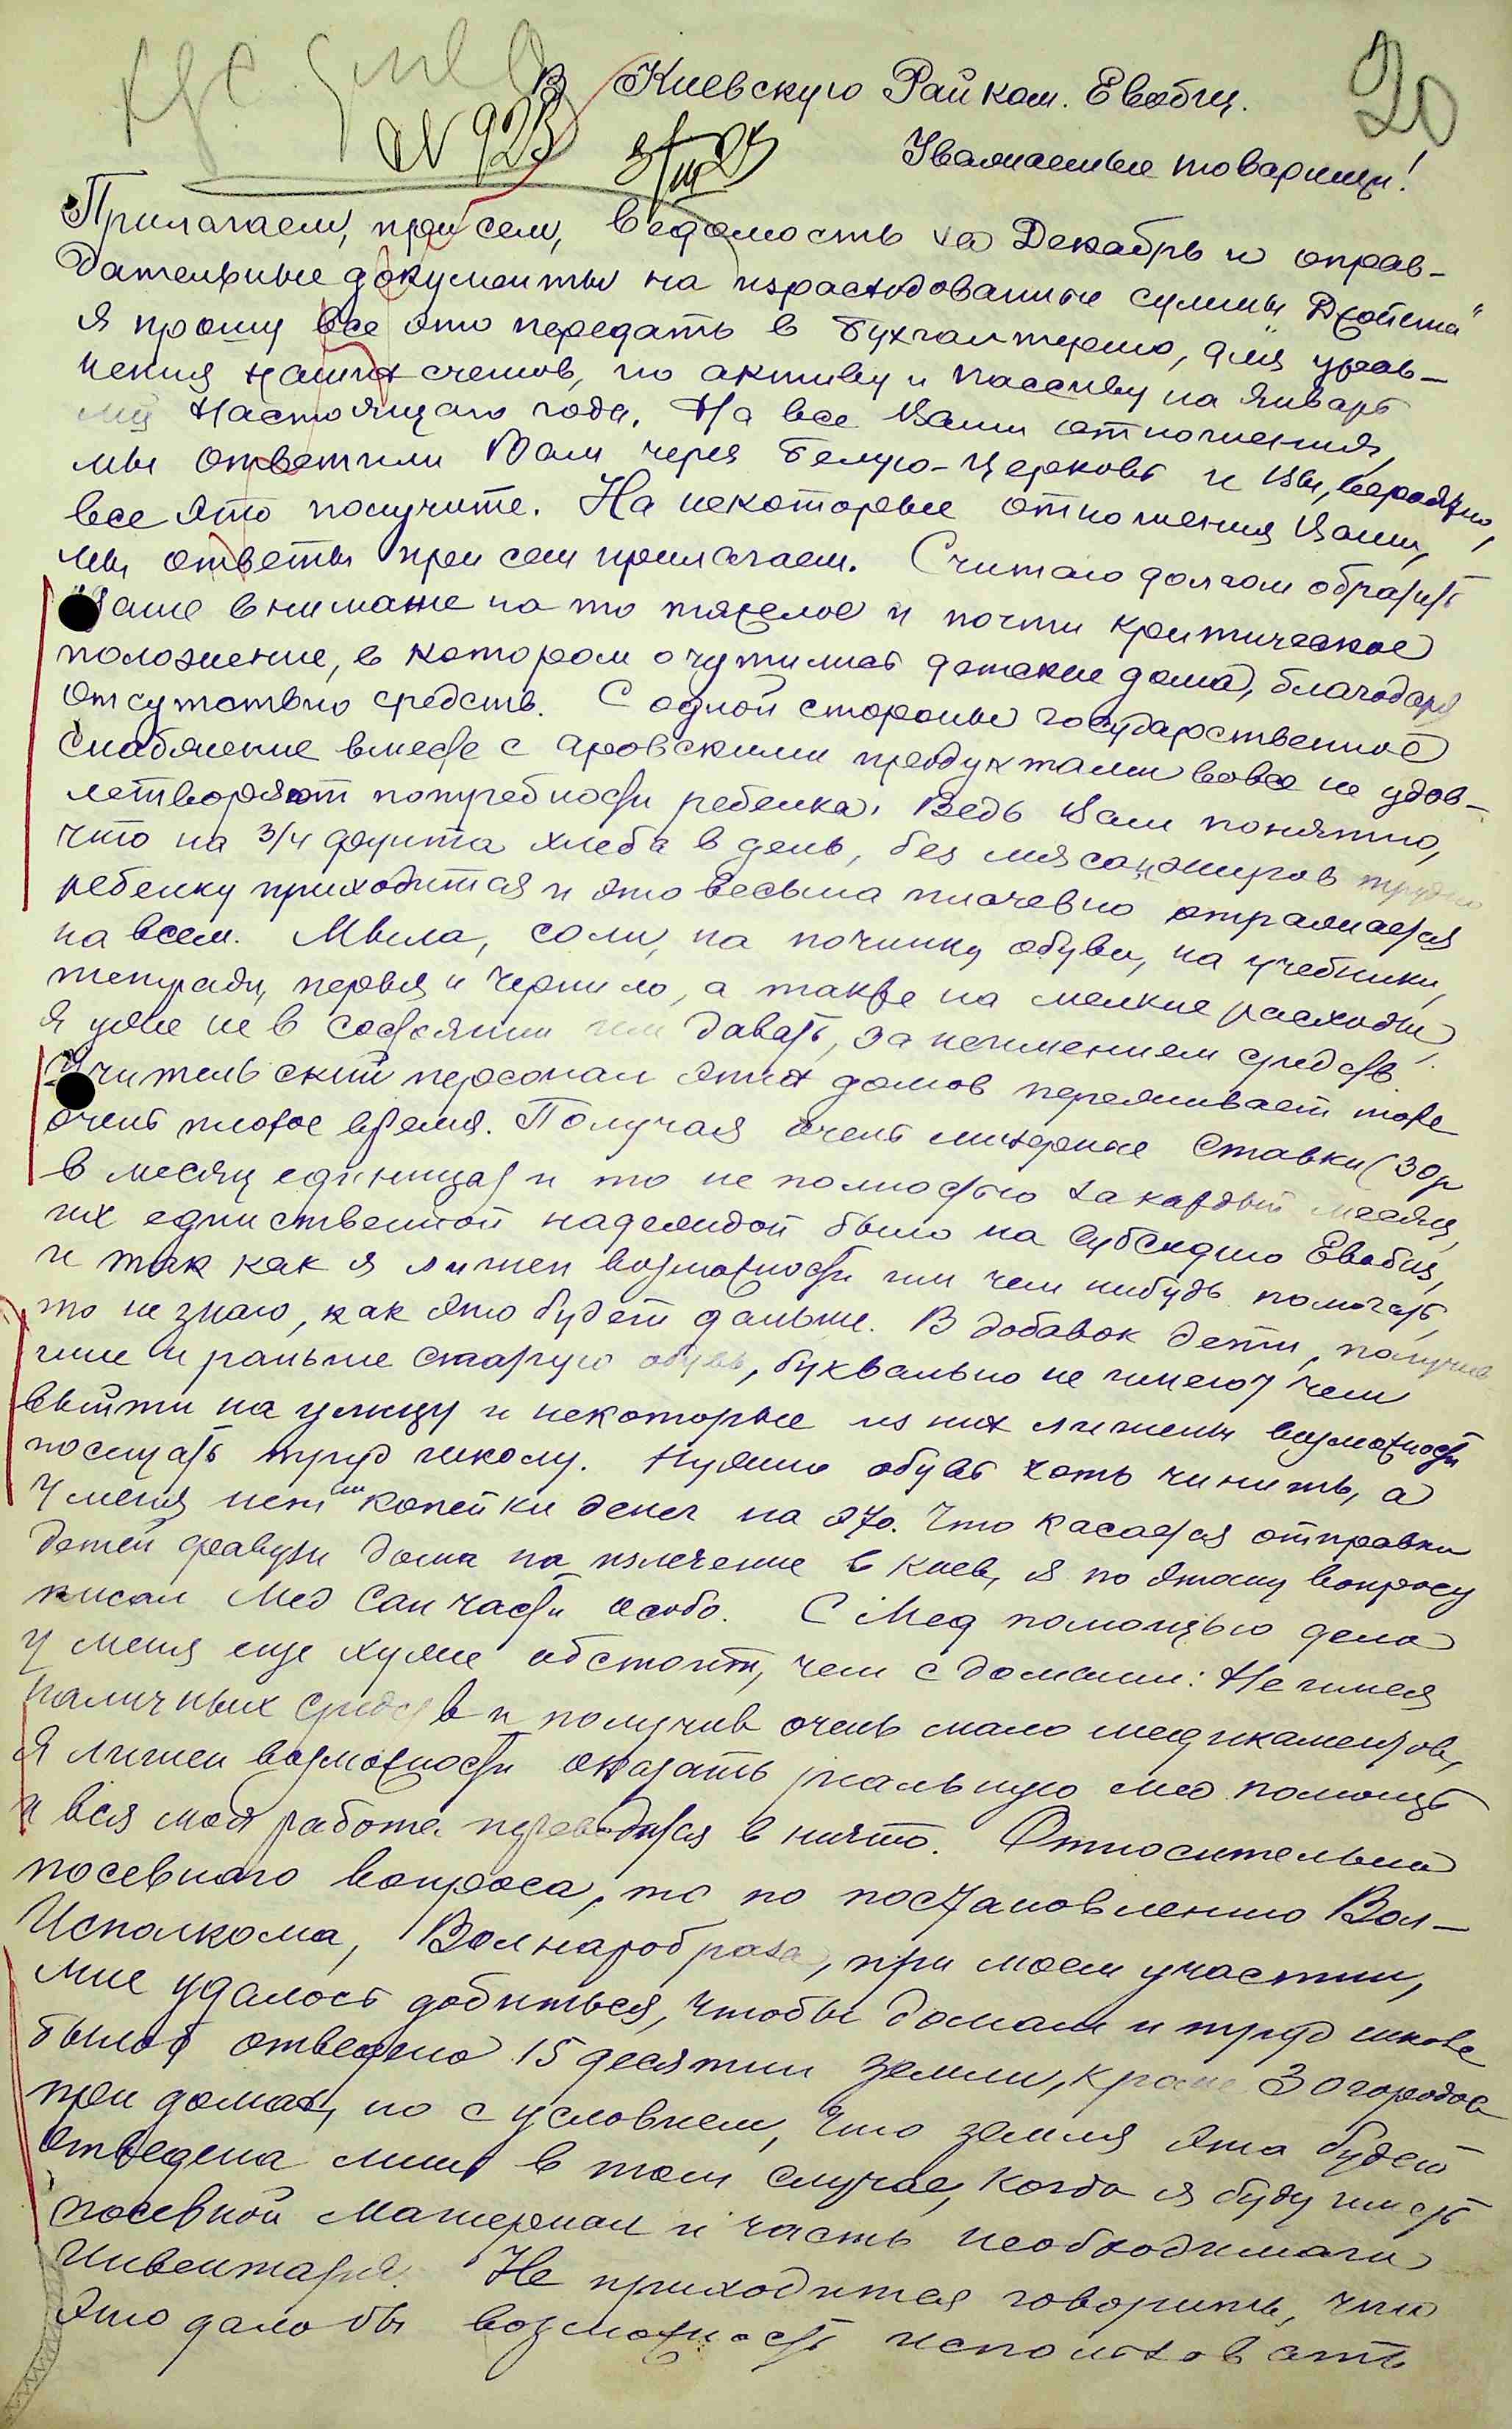 В Киевскую Райком. Евобщ.
20
N 923
3/III 23
Уважаемые товарищи!
Прилагаем, при сем, ведомость за Декабрь и оправ-
дательные документы на израсходованные суммы "Джойнта"
я прошу все это передать в Бухгалтерию, для урав-
нения наших счетов, по активу и пассиву на Январь
м-ц настоящаго года. На все Ваши отношения,
мы ответили Вам через Белую-Церковь и Вы, вероятно,
все это получите. На некоторые отношения Ваши,
мы ответы при сем прилагаем. Считаю долгом обратить
Ваше внимание на то тяжелое и почти критическое
положение, в котором очутились детские дома, благодаря
отсутствию средств. С одной стороны государственное
снабжение вместе с аровскими продуктами вовсе не удов-
летворяют потребности ребенка. Ведь Вам понятно,
что на 3/4 фунта хлеба в день, без мяса и жиров трудно
ребенку приходится и это весьма плачевно отражается
на всем. Мыла, соли, на починку обуви, на учебники,
тетради, перья и чернило, а также на мелкие расходы
я уже не в состоянии им давать, за неимением средств.
Учительский персонал этих домов переживает тоже
очень плохое время. Получая очень мизерные ставки (30 р
в месяц единицах и то не полностью за каждый месяц,
их единственной надеждой было на субсидию Евобщ,
и так как я лишен возможности им чем нибудь помогать,
то не знаю, как это будет дальше. В добавок дети, получив
шие и раньше старую обувь, буквально не имеют чем
выйти на улицу и некоторые из них лишены возможности
посещать труд школу. Нужно обувь хоть чинить, а
у меня нет ни копейки денег на это. Что касается отправки
детей дома на излечение в Киев, я по этому вопросу
писал Мед Сан части особо. С Мед помощью дела
у меня еще хуже обстоит, чем с домами: Не имея
наличных средств и получив очень мало медикаментов,
я лишен возможности оказать реальную мед помощь
и вся моя работа переводится в ничто. Относительно
посевного вопроса, то по постановлению Вол-
Исполкома, Волнаробраза, при моем участии,
мне удалось добиться, чтобы домам и труд школе
было отведено 15 десятин земли, кроме 3 огородов
при домах, но с условием, что земля эта будет
отведена лишь в том случае, когда я буду иметь
посевной материал и часть необходимаго
инвентаря. Не приходится говорить, что
это дало бы возможность использовать